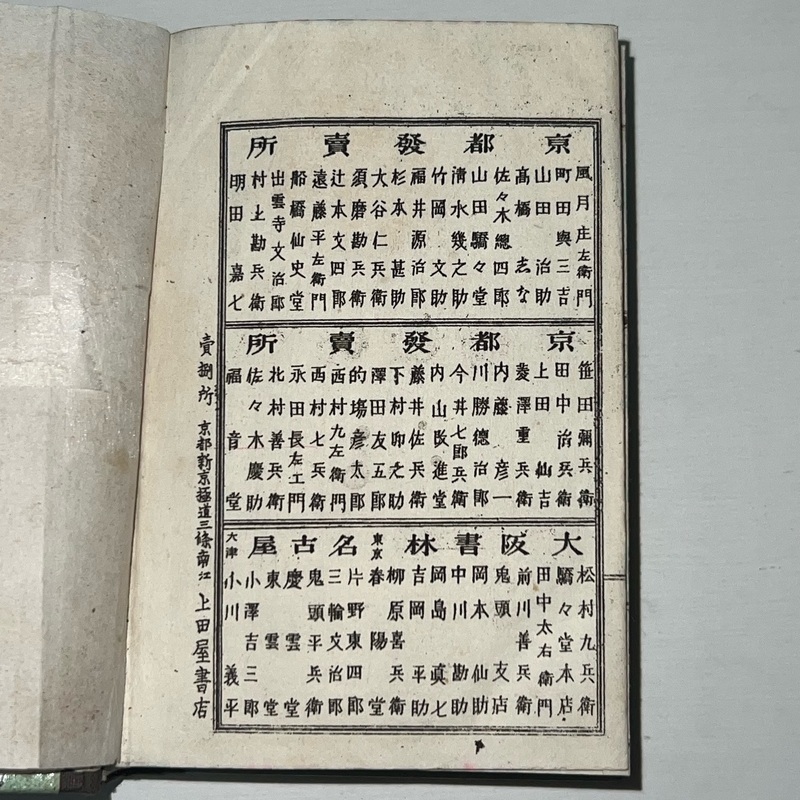 京都發賣所
風月庄左衛門
町田與三吉
山田治助
高橋志な
佐々木總四郎
山田驕々堂
清水幾之助
竹岡文助
福井源治郎
杉本甚助
大谷仁兵衛
須磨勘兵衛
辻本文四郎
遠藤平左衛門
船橋仙史堂
出雲寺文治郎
村上勘兵衛
明田嘉七
京都發賣所
笹田彌兵衛
田中治兵衛
上田仙吉
菱澤重兵衛
内藤彦一
川勝德治郎
今井七郎兵衛
内山改進堂
藤井佐兵衛
下村卯之助
澤田友五郎
的塲彦太郎
西村九左衛門
西村七兵衛
永田長左エ門
北村善兵衛
佐々木慶助
福音堂
大阪書林
松村九兵衛
驕々堂本店
田中太右衛門
前川善兵衛
鬼頭支店
岡本仙助
中川勘助
岡島眞七
吉岡平助
柳原喜兵衛
東京
春陽堂
名古屋
片野東四郎
三輪文治郎
鬼頭平兵衛
慶雲堂
東雲堂
小澤吉三郎
大津
小川義平
賣捌所 京都新京極道三條南江 上田屋書店